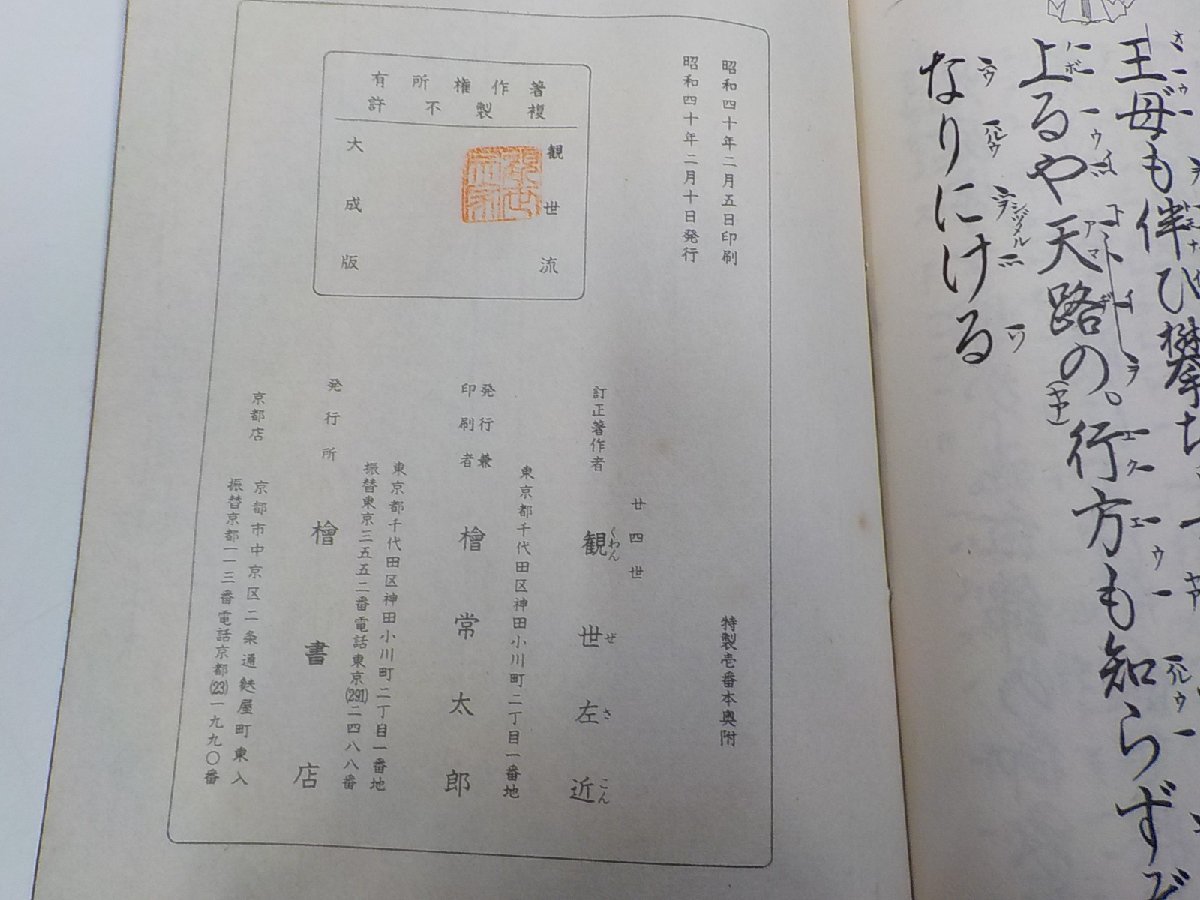 王母も伴ひ攀ぢ
上るや天路の。行方も知らずぞ
なりにける
特製壱番本奥附
昭和四十年二月五日印刷
昭和四十年二月十日発行
著作権所有
複製不許
観世流
大成版
廿四世
訂正著作者 観世左近
くわんぜさこん
東京都千代田区神田小川町二丁目一番地
発行兼
印刷者
檜常太郎
東京都千代田区神田小川町二丁目一番地
振替東京三五五二番電話東京(291)二四八八番
発行所 檜書店
京都店 京都市中京区二条通麩屋町東入
振替京都一一三番電話京都(23)一九九〇番